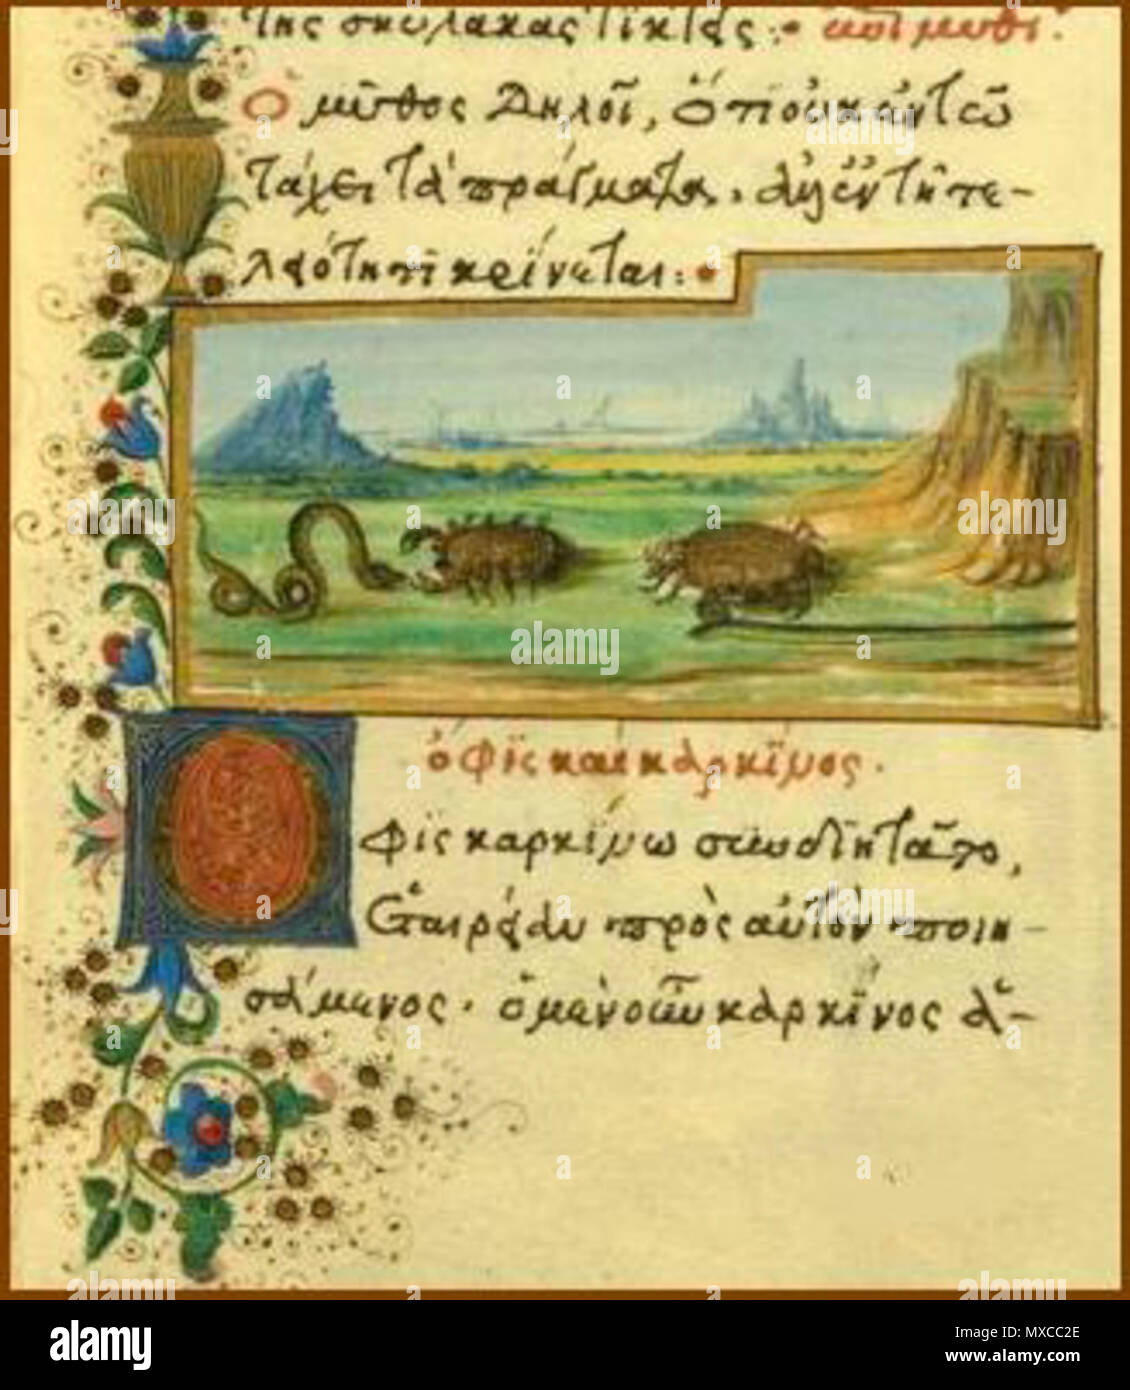 τῆς σκύλακας τίκτεις· ἐπιμύθι.
Ὁ μῦθος δηλοῖ, ὅτι οὐκ ἐν τῶ
τάχει τὰ πράγματα, ἀλλ' ἐν τῆ τε-
λειότητι κρίνεται:
ὄφις καὶ καρκῖνος.
Ὄφις καρκίνω συνδιητᾶτο,
ἑταιρείαν πρὸς αὐτὸν ποιη-
σάμενος. ὁ μὲν οὖν καρκῖνος ἁ-
alamy
Image ID: MXCC2E
www.alamy.com